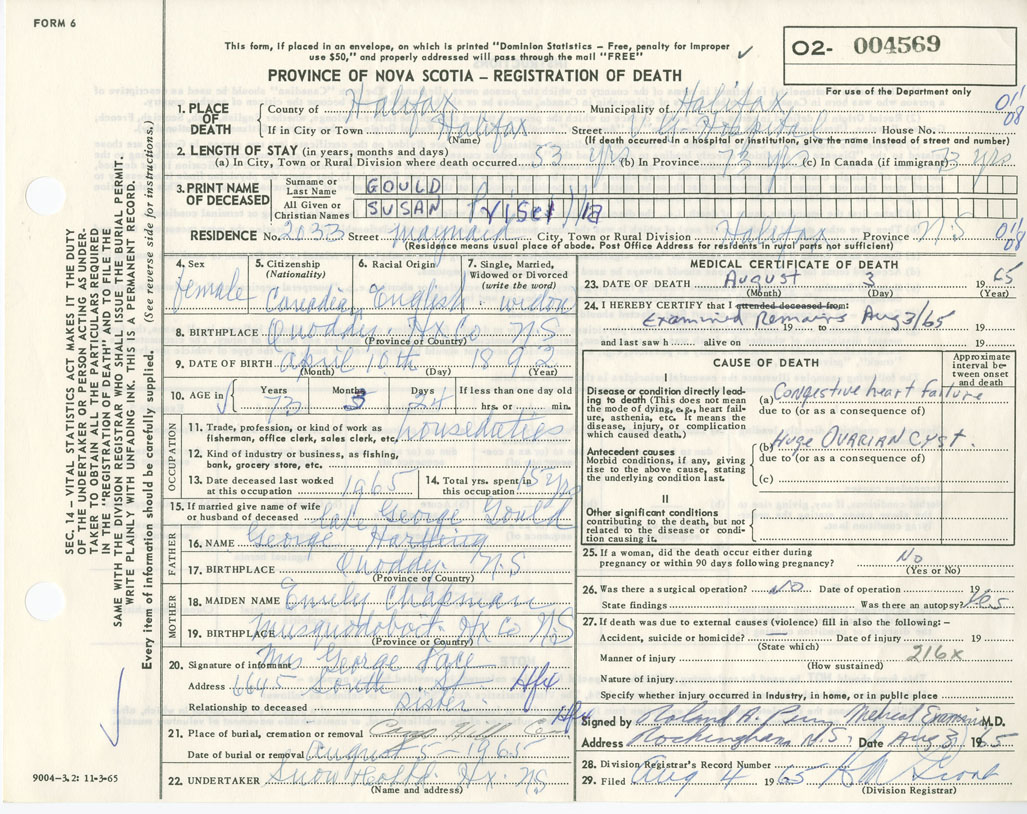 FORM 6
This form, if placed in an envelope, on which is printed "Dominion Statistics – Free, penalty for improper
use $50," and properly addressed will pass through the mail "FREE"
✓
O2- 004569
For use of the Department only
PROVINCE OF NOVA SCOTIA – REGISTRATION OF DEATH
1. PLACE OF DEATH
County of Halifax Municipality of Halifax
If in City or Town Halifax Street V.G. Hospital House No.
(Name) (If death occurred in a hospital or institution, give the name instead of street and number)
01'
08
2. LENGTH OF STAY (in years, months and days)
(a) In City, Town or Rural Division where death occurred 53 yrs (b) In Province 73 yrs (c) In Canada (if immigrant) 73 yrs
3. PRINT NAME OF DECEASED
Surname or Last Name GOULD
All Given or Christian Names SUSAN Priscilla
RESIDENCE No. 2033 Street Maynard City, Town or Rural Division Halifax Province N.S
(Residence means usual place of abode. Post Office Address for residents in rural parts not sufficient)
01'
08
4. Sex
female
5. Citizenship (Nationality)
Canadian
6. Racial Origin
English
7. Single, Married, Widowed or Divorced (write the word)
widow
8. BIRTHPLACE Quoddy Hx Co NS
(Province or Country)
9. DATE OF BIRTH April 10th 1892
(Month) (Day) (Year)
10. AGE in
Years Months Days If less than one day old
73 3 24 hrs. or min.
OCCUPATION
11. Trade, profession, or kind of work as
fisherman, office clerk, sales clerk, etc. houseduties
12. Kind of industry or business, as fishing,
bank, grocery store, etc.
13. Date deceased last worked
at this occupation 1965
14. Total yrs. spent in
this occupation 15 yrs
15. If married give name of wife
or husband of deceased late George Gould
FATHER
16. NAME George Hartling
17. BIRTHPLACE Quoddy N.S
(Province or Country)
MOTHER
18. MAIDEN NAME Emily Chapman
19. BIRTHPLACE Musquodoboit Hx Co NS
(Province or Country)
20. Signature of informant Mrs George Pace
Address 6645 South St Hfx
Relationship to deceased Sister
21. Place of burial, cremation or removal Camp Hill Cem Hfx
Date of burial or removal August 5-1965
22. UNDERTAKER Snow Co Ltd. Hx. NS
(Name and address)
MEDICAL CERTIFICATE OF DEATH
23. DATE OF DEATH August 3 1965
(Month) (Day) (Year)
24. I HEREBY CERTIFY that I attended deceased from:
Examined Remains Aug 3/65
19 to 19
and last saw h alive on 19
CAUSE OF DEATH
Approximate interval between onset and death
I
Disease or condition directly leading to death (This does not mean the mode of dying, e.g., heart failure, asthenia, etc. It means the disease, injury, or complication which caused death.)
(a) Congestive heart failure
due to (or as a consequence of)
Antecedent causes
Morbid conditions, if any, giving rise to the above cause, stating the underlying condition last.
(b) Huge OVARIAN CYST.
due to (or as a consequence of)
(c)
II
Other significant conditions
contributing to the death, but not related to the disease or condition causing it.
25. If a woman, did the death occur either during
pregnancy or within 90 days following pregnancy? No
(Yes or No)
26. Was there a surgical operation? No Date of operation 19
State findings Was there an autopsy? Yes
27. If death was due to external causes (violence) fill in also the following: –
Accident, suicide or homicide? — Date of injury 19
(State which)
Manner of injury 216x
(How sustained)
Nature of injury
Specify whether injury occurred in Industry, in home, or in public place
Signed by Roland A. Perry Medical Examiner M.D.
Address Rockingham N.S. Date Aug 3 1965
28. Division Registrar's Record Number
29. Filed Aug 4 1965
(Division Registrar)
SEC. 14 – VITAL STATISTICS ACT MAKES IT THE DUTY
OF THE UNDERTAKER OR PERSON ACTING AS UNDER-
TAKER TO OBTAIN ALL THE PARTICULARS REQUIRED
IN THE "REGISTRATION OF DEATH" AND TO FILE THE
SAME WITH THE DIVISION REGISTRAR WHO SHALL ISSUE THE BURIAL PERMIT.
WRITE PLAINLY WITH UNFADING INK. THIS IS A PERMANENT RECORD.
Every item of information should be carefully supplied. (See reverse side for instructions.)
9004–3.2: 11-3-65